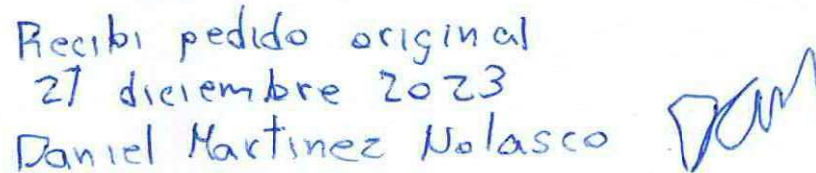 Recibi pedido original
27 diciembre 2023
Daniel Martinez Nolasco